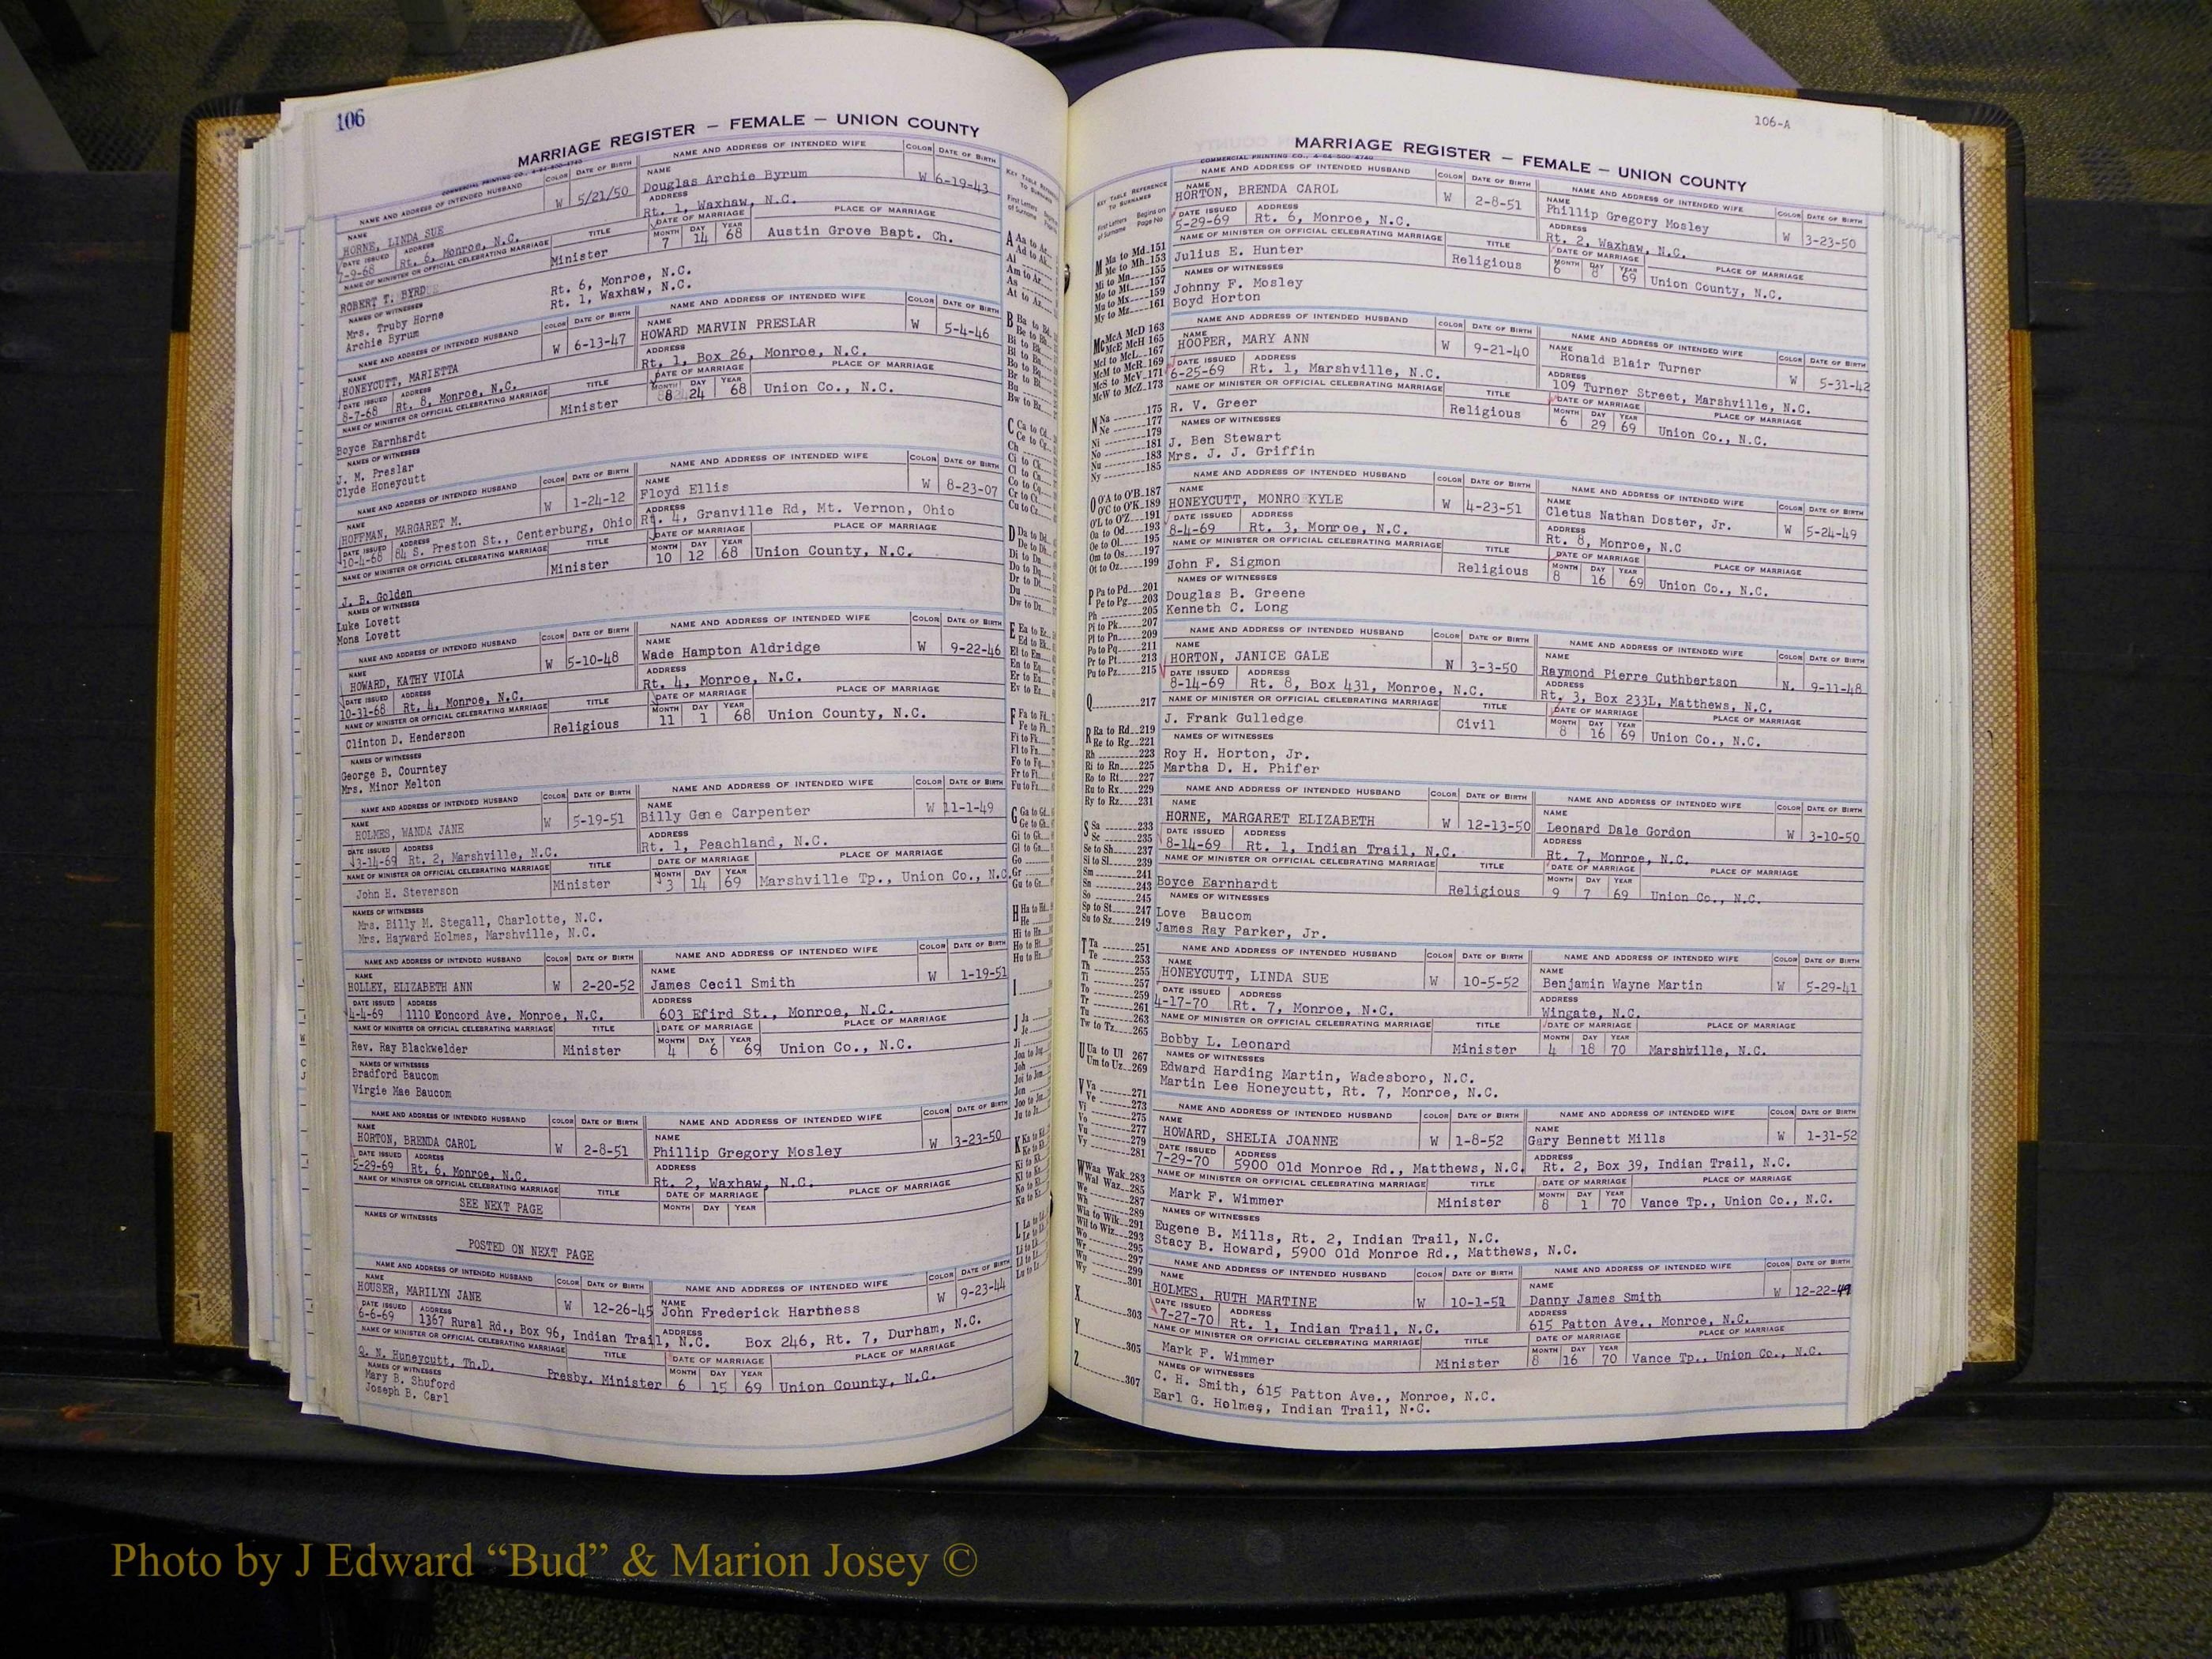 106
MARRIAGE REGISTER — FEMALE — UNION COUNTY
COMMERCIAL PRINTING CO.
NAME AND ADDRESS OF INTENDED HUSBAND COLOR DATE OF BIRTH NAME AND ADDRESS OF INTENDED WIFE COLOR DATE OF BIRTH
NAME HORNE, LINDA SUE W 5/21/50 NAME Douglas Archie Byrum W 6-19-43
DATE ISSUED 7-9-68 ADDRESS Rt. 6, Monroe, N.C. ADDRESS Rt. 1, Waxhaw, N.C.
NAME OF MINISTER OR OFFICIAL CELEBRATING MARRIAGE TITLE DATE OF MARRIAGE PLACE OF MARRIAGE
ROBERT T. BYRD Minister MONTH 7 DAY 14 YEAR 68 Austin Grove Bapt. Ch.
NAMES OF WITNESSES
Mrs. Truby Horne Rt. 6, Monroe, N.C.
Archie Byrum Rt. 1, Waxhaw, N.C.
NAME AND ADDRESS OF INTENDED HUSBAND COLOR DATE OF BIRTH NAME AND ADDRESS OF INTENDED WIFE COLOR DATE OF BIRTH
NAME HONEYCUTT, MARIETTA W 6-13-47 NAME HOWARD MARVIN PRESLAR W 5-4-46
DATE ISSUED 8-7-68 ADDRESS Rt. 8, Monroe, N.C. ADDRESS Rt. 1, Box 26, Monroe, N.C.
NAME OF MINISTER OR OFFICIAL CELEBRATING MARRIAGE TITLE DATE OF MARRIAGE PLACE OF MARRIAGE
Boyce Earnhardt Minister MONTH 8 DAY 24 YEAR 68 Union Co., N.C.
NAMES OF WITNESSES
J. M. Preslar
Clyde Honeycutt
NAME AND ADDRESS OF INTENDED HUSBAND COLOR DATE OF BIRTH NAME AND ADDRESS OF INTENDED WIFE COLOR DATE OF BIRTH
NAME HOFFMAN, MARGARET M. W 1-24-12 NAME Floyd Ellis W 8-23-07
DATE ISSUED 10-4-68 ADDRESS 84 S. Preston St., Centerburg, Ohio ADDRESS Rt. 4, Granville Rd, Mt. Vernon, Ohio
NAME OF MINISTER OR OFFICIAL CELEBRATING MARRIAGE TITLE DATE OF MARRIAGE PLACE OF MARRIAGE
J. B. Golden Minister MONTH 10 DAY 12 YEAR 68 Union County, N.C.
NAMES OF WITNESSES
Luke Lovett
Mona Lovett
NAME AND ADDRESS OF INTENDED HUSBAND COLOR DATE OF BIRTH NAME AND ADDRESS OF INTENDED WIFE COLOR DATE OF BIRTH
NAME HOWARD, KATHY VIOLA W 5-10-48 NAME Wade Hampton Aldridge W 9-22-46
DATE ISSUED 10-31-68 ADDRESS Rt. 4, Monroe, N.C. ADDRESS Rt. 4, Monroe, N.C.
NAME OF MINISTER OR OFFICIAL CELEBRATING MARRIAGE TITLE DATE OF MARRIAGE PLACE OF MARRIAGE
Clinton D. Henderson Religious MONTH 11 DAY 1 YEAR 68 Union County, N.C.
NAMES OF WITNESSES
George B. Courntey
Mrs. Minor Melton
NAME AND ADDRESS OF INTENDED HUSBAND COLOR DATE OF BIRTH NAME AND ADDRESS OF INTENDED WIFE COLOR DATE OF BIRTH
NAME HOLMES, WANDA JANE W 5-19-51 NAME Billy Gene Carpenter W 11-1-49
DATE ISSUED 3-14-69 ADDRESS Rt. 2, Marshville, N.C. ADDRESS Rt. 1, Peachland, N.C.
NAME OF MINISTER OR OFFICIAL CELEBRATING MARRIAGE TITLE DATE OF MARRIAGE PLACE OF MARRIAGE
John H. Steverson Minister MONTH 3 DAY 14 YEAR 69 Marshville Tp., Union Co., N.C.
NAMES OF WITNESSES
Mrs. Billy M. Stegall, Charlotte, N.C.
Mrs. Hayward Holmes, Marshville, N.C.
NAME AND ADDRESS OF INTENDED HUSBAND COLOR DATE OF BIRTH NAME AND ADDRESS OF INTENDED WIFE COLOR DATE OF BIRTH
NAME HOLLEY, ELIZABETH ANN W 2-20-52 NAME James Cecil Smith W 1-19-51
DATE ISSUED 4-4-69 ADDRESS 1110 Concord Ave. Monroe, N.C. ADDRESS 603 Efird St., Monroe, N.C.
NAME OF MINISTER OR OFFICIAL CELEBRATING MARRIAGE TITLE DATE OF MARRIAGE PLACE OF MARRIAGE
Rev. Ray Blackwelder Minister MONTH 4 DAY 6 YEAR 69 Union Co., N.C.
NAMES OF WITNESSES
Bradford Baucom
Virgie Mae Baucom
NAME AND ADDRESS OF INTENDED HUSBAND COLOR DATE OF BIRTH NAME AND ADDRESS OF INTENDED WIFE COLOR DATE OF BIRTH
NAME HORTON, BRENDA CAROL W 2-8-51 NAME Phillip Gregory Mosley W 3-23-50
DATE ISSUED 5-29-69 ADDRESS Rt. 6, Monroe, N.C. ADDRESS Rt. 2, Waxhaw, N.C.
NAME OF MINISTER OR OFFICIAL CELEBRATING MARRIAGE TITLE DATE OF MARRIAGE PLACE OF MARRIAGE
SEE NEXT PAGE MONTH DAY YEAR
NAMES OF WITNESSES
POSTED ON NEXT PAGE
NAME AND ADDRESS OF INTENDED HUSBAND COLOR DATE OF BIRTH NAME AND ADDRESS OF INTENDED WIFE COLOR DATE OF BIRTH
NAME HOUSER, MARILYN JANE W 12-26-45 NAME John Frederick Harthess W 9-23-44
DATE ISSUED 6-6-69 ADDRESS 1367 Rural Rd., Box 96, Indian Trail, N.C. ADDRESS Box 246, Rt. 7, Durham, N.C.
NAME OF MINISTER OR OFFICIAL CELEBRATING MARRIAGE TITLE DATE OF MARRIAGE PLACE OF MARRIAGE
Q. N. Huneycutt, Th.D. Presby. Minister 6 15 69 Union County, N.C.
NAMES OF WITNESSES
Mary B. Shuford
Joseph B. Carl
106-A
MARRIAGE REGISTER — FEMALE — UNION COUNTY
COMMERCIAL PRINTING CO.
KEY TABLE REFERENCE TO SURNAMES
First Letters of Surname Begins on Page No
M Ma to Md 151
Me to Mh 153
Mi to Mn 155
Mo to Mt 157
Mu to Mx 159
My to Mz 161
Mc McA McD 163
McE McH 165
McI to McL 167
McM to McR 169
McS to McV 171
McW to McZ 173
N Na 175
Ne 177
Ni 179
No 181
Nu 183
Ny 185
O O'A to O'B 187
O'C to O'K 189
O'L to O'Z 191
Oa to Od 193
Oe to Ol 195
Om to Os 197
Ot to Oz 199
P Pa to Pd 201
Pe to Pg 203
Ph 205
Pi to Pk 207
Pl to Pn 209
Po to Pq 211
Pr to Pt 213
Pu to Pz 215
Q 217
R Ra to Rd 219
Re to Rg 221
Rh 223
Ri to Rn 225
Ro to Rt 227
Ru to Rx 229
Ry to Rz 231
S Sa 233
Sc 235
Se to Sh 237
Si to Sl 239
Sm 241
Sn 243
So 245
Sp to St 247
Su to Sz 249
T Ta 251
Te 253
Th 255
Ti 257
To 259
Tr 261
Tu 263
Tw to Tz 265
U Ua to Ul 267
Um to Uz 269
V Va 271
Ve 273
Vi 275
Vo 277
Vu 279
Vy 281
W Waa Wak 283
Wal Waz 285
We 287
Wh 289
Wia to Wik 291
Wil to Wiz 293
Wo 295
Wr 297
Wu 299
Wy 301
X 303
Y 305
Z 307
NAME AND ADDRESS OF INTENDED HUSBAND COLOR DATE OF BIRTH NAME AND ADDRESS OF INTENDED WIFE COLOR DATE OF BIRTH
NAME HORTON, BRENDA CAROL W 2-8-51 NAME Phillip Gregory Mosley W 3-23-50
DATE ISSUED 5-29-69 ADDRESS Rt. 6, Monroe, N.C. ADDRESS Rt. 2, Waxhaw, N.C.
NAME OF MINISTER OR OFFICIAL CELEBRATING MARRIAGE TITLE DATE OF MARRIAGE PLACE OF MARRIAGE
Julius E. Hunter Religious MONTH 6 DAY 8 YEAR 69 Union County, N.C.
NAMES OF WITNESSES
Johnny F. Mosley
Boyd Horton
NAME AND ADDRESS OF INTENDED HUSBAND COLOR DATE OF BIRTH NAME AND ADDRESS OF INTENDED WIFE COLOR DATE OF BIRTH
NAME HOOPER, MARY ANN W 9-21-40 NAME Ronald Blair Turner W 5-31-42
DATE ISSUED 6-25-69 ADDRESS Rt. 1, Marshville, N.C. ADDRESS 109 Turner Street, Marshville, N.C.
NAME OF MINISTER OR OFFICIAL CELEBRATING MARRIAGE TITLE DATE OF MARRIAGE PLACE OF MARRIAGE
R. V. Greer Religious MONTH 6 DAY 29 YEAR 69 Union Co., N.C.
NAMES OF WITNESSES
J. Ben Stewart
Mrs. J. J. Griffin
NAME AND ADDRESS OF INTENDED HUSBAND COLOR DATE OF BIRTH NAME AND ADDRESS OF INTENDED WIFE COLOR DATE OF BIRTH
NAME HONEYCUTT, MONRO KYLE W 4-23-51 NAME Cletus Nathan Doster, Jr. W 5-24-49
DATE ISSUED 8-4-69 ADDRESS Rt. 3, Monroe, N.C. ADDRESS Rt. 8, Monroe, N.C
NAME OF MINISTER OR OFFICIAL CELEBRATING MARRIAGE TITLE DATE OF MARRIAGE PLACE OF MARRIAGE
John F. Sigmon Religious MONTH 8 DAY 16 YEAR 69 Union Co., N.C.
NAMES OF WITNESSES
Douglas B. Greene
Kenneth C. Long
NAME AND ADDRESS OF INTENDED HUSBAND COLOR DATE OF BIRTH NAME AND ADDRESS OF INTENDED WIFE COLOR DATE OF BIRTH
NAME HORTON, JANICE GALE N 3-3-50 NAME Raymond Pierre Cuthbertson N. 9-11-48
DATE ISSUED 8-14-69 ADDRESS Rt. 8, Box 431, Monroe, N.C. ADDRESS Rt. 3, Box 233L, Matthews, N.C.
NAME OF MINISTER OR OFFICIAL CELEBRATING MARRIAGE TITLE DATE OF MARRIAGE PLACE OF MARRIAGE
J. Frank Gulledge Civil MONTH 8 DAY 16 YEAR 69 Union Co., N.C.
NAMES OF WITNESSES
Roy H. Horton, Jr.
Martha D. H. Phifer
NAME AND ADDRESS OF INTENDED HUSBAND COLOR DATE OF BIRTH NAME AND ADDRESS OF INTENDED WIFE COLOR DATE OF BIRTH
NAME HORNE, MARGARET ELIZABETH W 12-13-50 NAME Leonard Dale Gordon W 3-10-50
DATE ISSUED 8-14-69 ADDRESS Rt. 1, Indian Trail, N.C. ADDRESS Rt. 7, Monroe, N.C.
NAME OF MINISTER OR OFFICIAL CELEBRATING MARRIAGE TITLE DATE OF MARRIAGE PLACE OF MARRIAGE
Boyce Earnhardt Religious MONTH 9 DAY 7 YEAR 69 Union Co., N.C.
NAMES OF WITNESSES
Love Baucom
James Ray Parker, Jr.
NAME AND ADDRESS OF INTENDED HUSBAND COLOR DATE OF BIRTH NAME AND ADDRESS OF INTENDED WIFE COLOR DATE OF BIRTH
NAME HONEYCUTT, LINDA SUE W 10-5-52 NAME Benjamin Wayne Martin W 5-29-41
DATE ISSUED 4-17-70 ADDRESS Rt. 7, Monroe, N.C. ADDRESS Wingate, N.C.
NAME OF MINISTER OR OFFICIAL CELEBRATING MARRIAGE TITLE DATE OF MARRIAGE PLACE OF MARRIAGE
Bobby L. Leonard Minister MONTH 4 DAY 18 YEAR 70 Marshville, N.C.
NAMES OF WITNESSES
Edward Harding Martin, Wadesboro, N.C.
Martin Lee Honeycutt, Rt. 7, Monroe, N.C.
NAME AND ADDRESS OF INTENDED HUSBAND COLOR DATE OF BIRTH NAME AND ADDRESS OF INTENDED WIFE COLOR DATE OF BIRTH
NAME HOWARD, SHELIA JOANNE W 1-8-52 NAME Gary Bennett Mills W 1-31-52
DATE ISSUED 7-29-70 ADDRESS 5900 Old Monroe Rd., Matthews, N.C. ADDRESS Rt. 2, Box 39, Indian Trail, N.C.
NAME OF MINISTER OR OFFICIAL CELEBRATING MARRIAGE TITLE DATE OF MARRIAGE PLACE OF MARRIAGE
Mark F. Wimmer Minister MONTH 8 DAY 1 YEAR 70 Vance Tp., Union Co., N.C.
NAMES OF WITNESSES
Eugene B. Mills, Rt. 2, Indian Trail, N.C.
Stacy B. Howard, 5900 Old Monroe Rd., Matthews, N.C.
NAME AND ADDRESS OF INTENDED HUSBAND COLOR DATE OF BIRTH NAME AND ADDRESS OF INTENDED WIFE COLOR DATE OF BIRTH
NAME HOLMES, RUTH MARTINE W 10-1-51 NAME Danny James Smith W 12-22-49
DATE ISSUED 7-27-70 ADDRESS Rt. 1, Indian Trail, N.C. ADDRESS 615 Patton Ave., Monroe, N.C.
NAME OF MINISTER OR OFFICIAL CELEBRATING MARRIAGE TITLE DATE OF MARRIAGE PLACE OF MARRIAGE
Mark F. Wimmer Minister MONTH 8 DAY 16 YEAR 70 Vance Tp., Union Co., N.C.
NAMES OF WITNESSES
C. H. Smith, 615 Patton Ave., Monroe, N.C.
Earl G. Holmes, Indian Trail, N.C.
Photo by J Edward “Bud” & Marion Josey ©